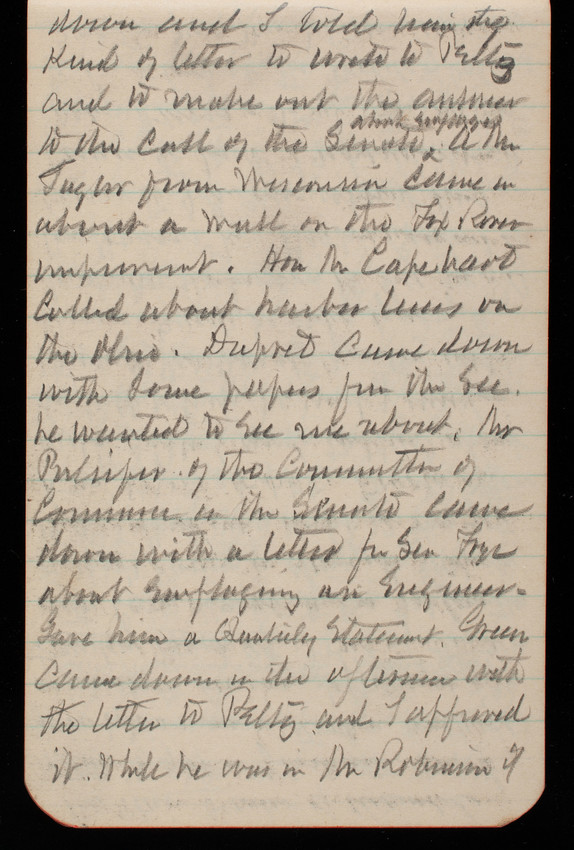 down and I told him the
Kind of letter to write to Peltz
and to make out the answer
about Employees
to the call of the Senate. A Mr
from Wisconsin came in
about a mill on the Fox River
improvment. Hon Mr Capehart
Called about harbor lines on
the Ohio. Dupret came down
with some papers for the Sec.
he wanted to see me about. Mr
Pulsifer of the Committee of
Commerce in the Senate came
down with a letter for Sen Frye
about Employing an Engineer.
Gave him a Quarterly Statement. Green
Came down in the afternoon with
the letter to Peltz and I approved
it. While he was in Mr Robinson of